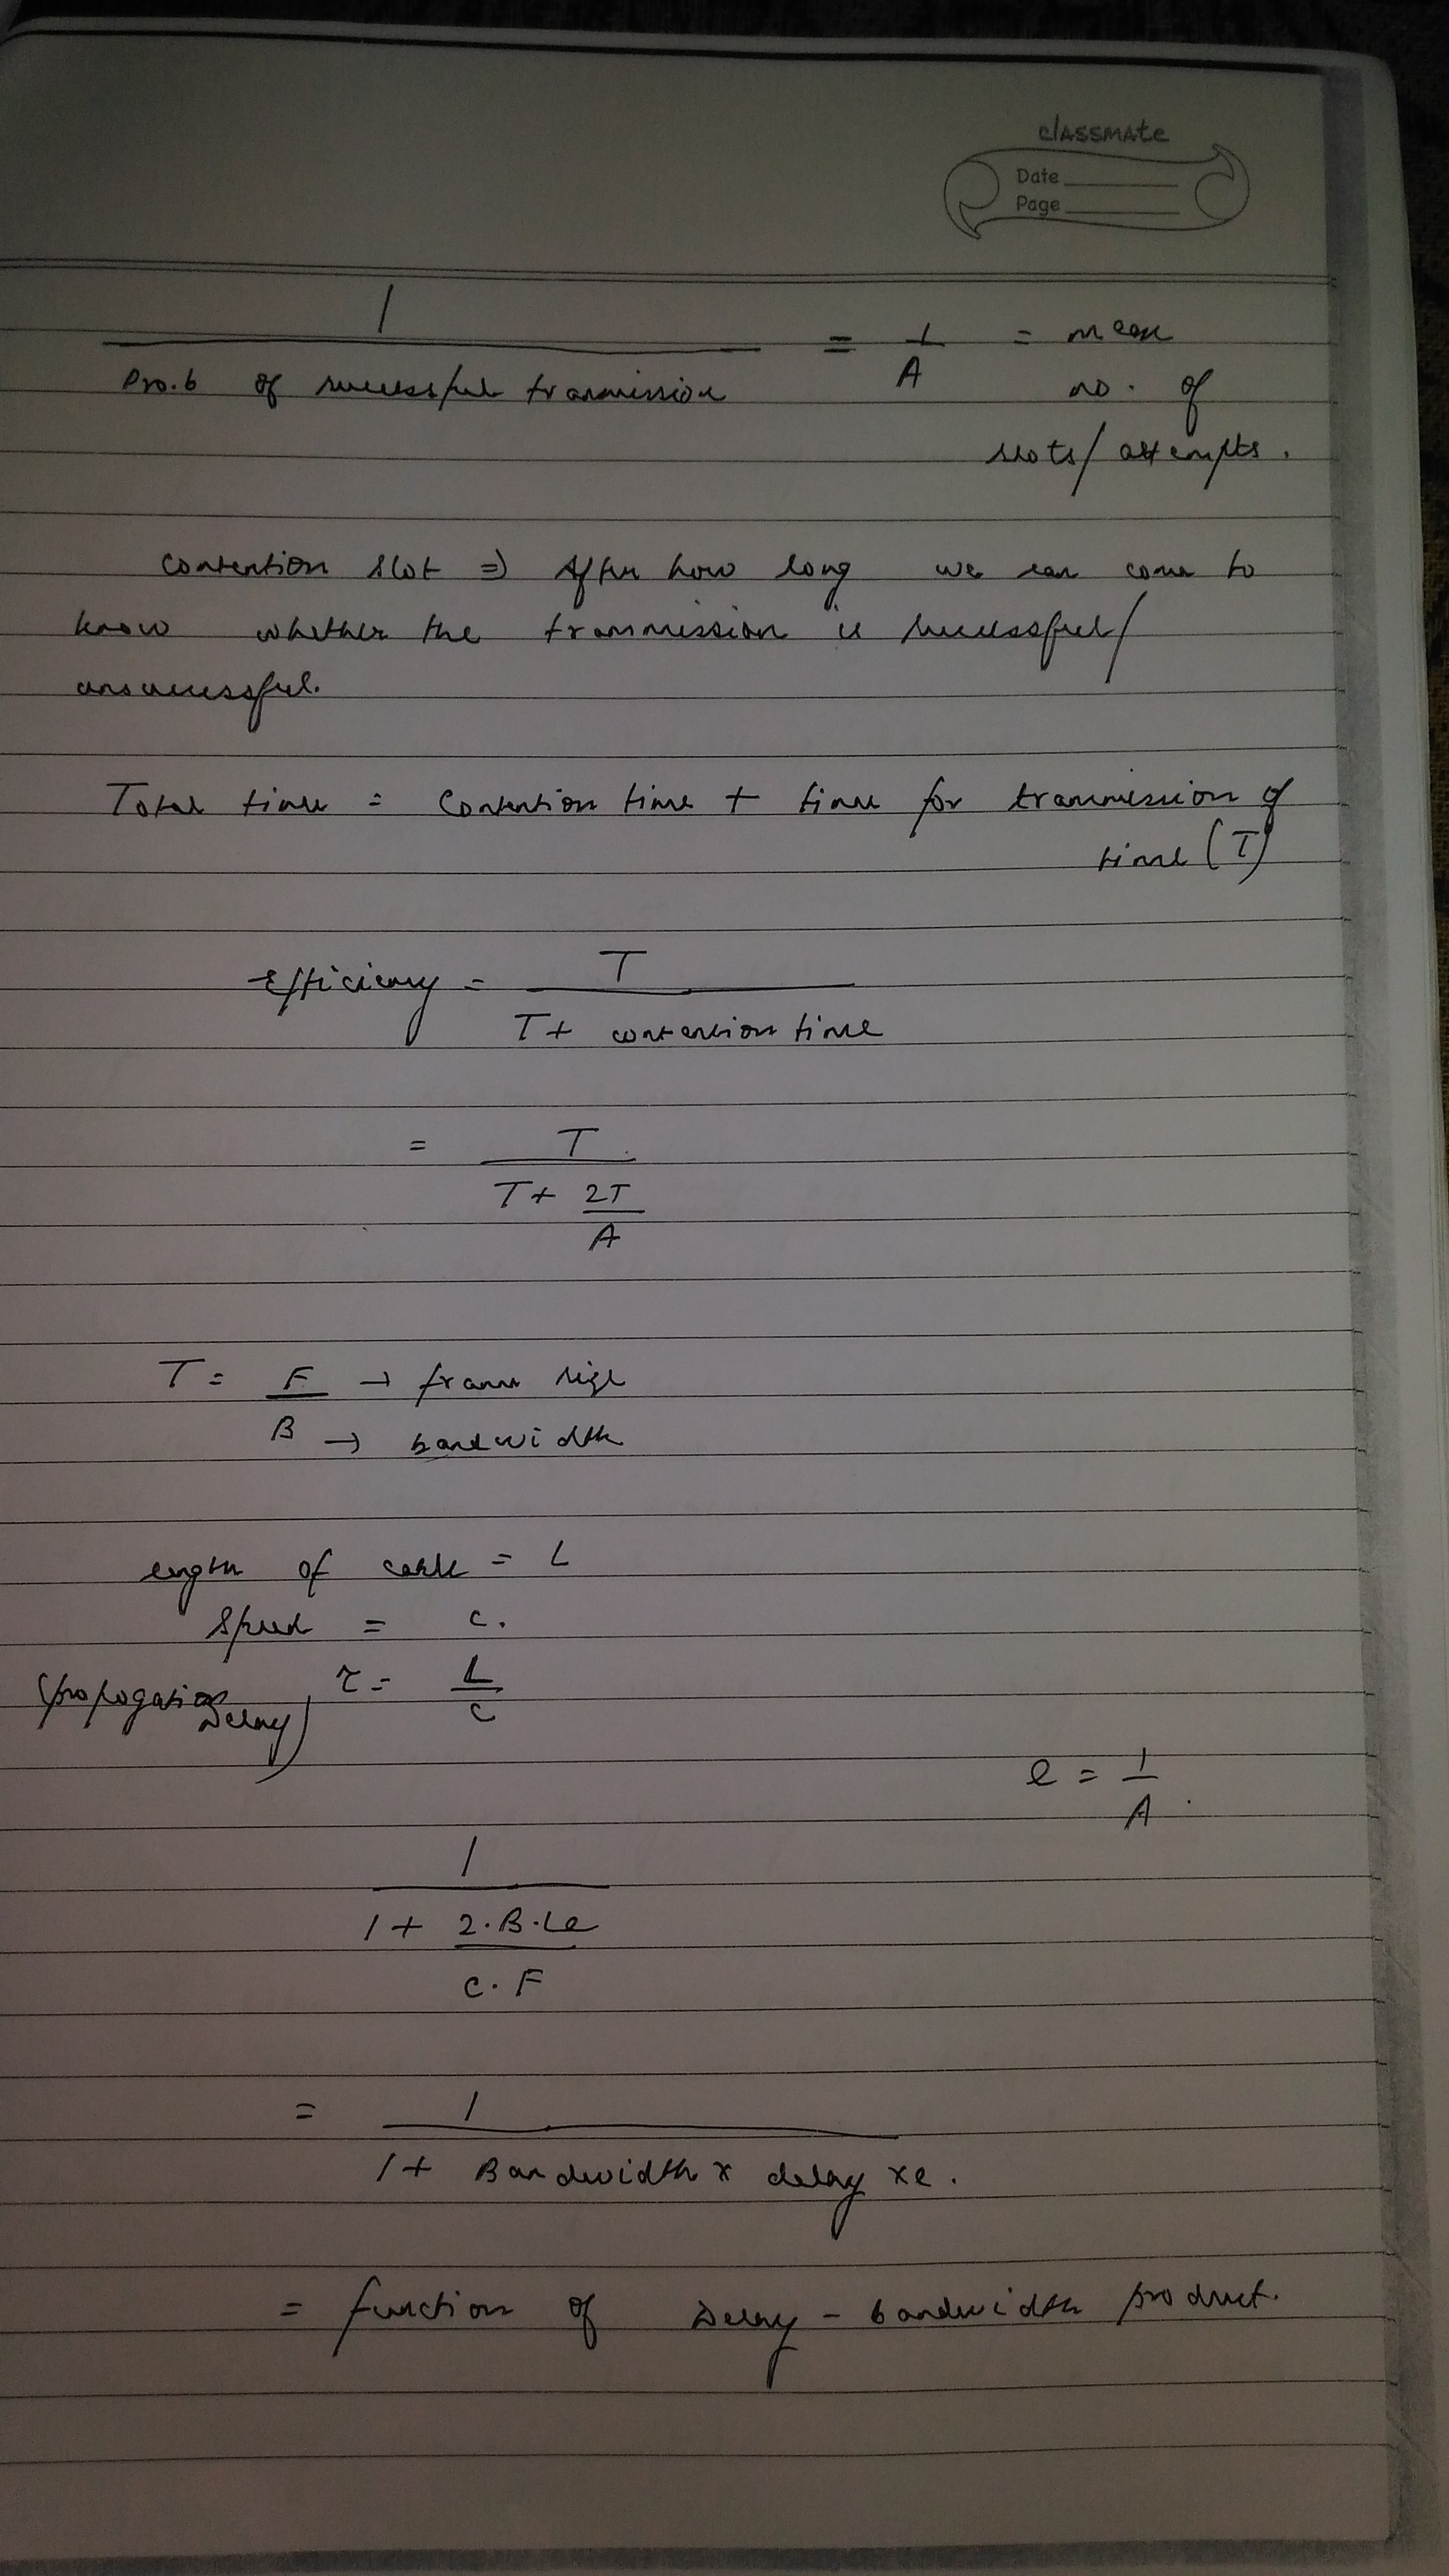 classmate
Date
Page
1
Prob of successful transmission = 1/A = mean
no. of
slots/attempts.
Contention slot ⇒ After how long we can come to
know whether the transmission is successful/
unsuccessful.
Total time = Contention time + time for transmission of
time (T)
Efficiency = T
T + contention time
= T
T + 2T
A
T = F → frame size
B → bandwidth
length of cable = L
Speed = c.
(propogation Delay) τ = L
c
e = 1
A
1
1 + 2.B.Le
c.F
= 1
1 + Bandwidth x delay x e.
= function of Delay - bandwidth product.